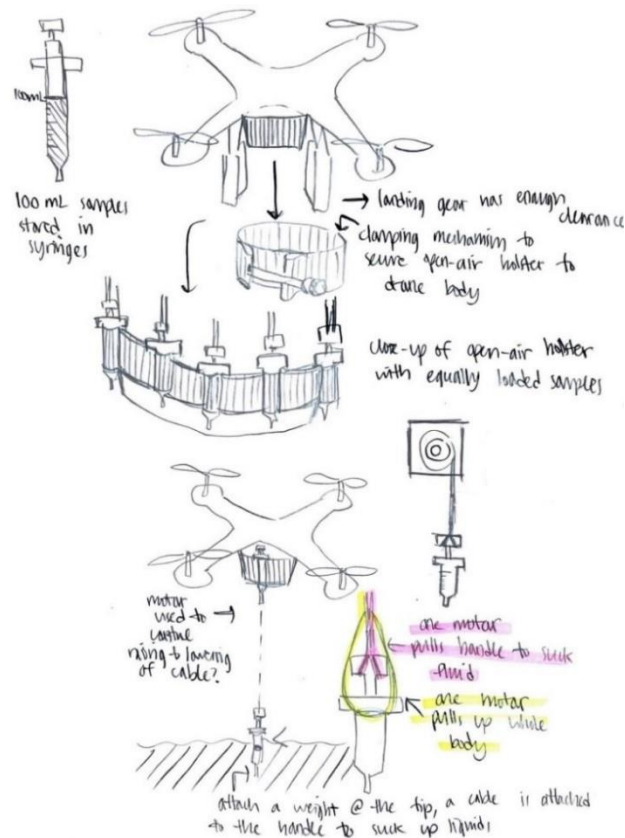 100mL
100 mL samples
stored in
syringes
→ landing gear has enough
clearance
clamping mechanism to
secure open-air holster to
drone body
close-up of open-air holster
with equally loaded samples
motor
used to
raising & lowering
of cable?
one motor
pulls handle to suck
fluid
one motor
pulls up whole
body
attach a weight @ the tip, a cable is attached
to the handle to suck up liquids